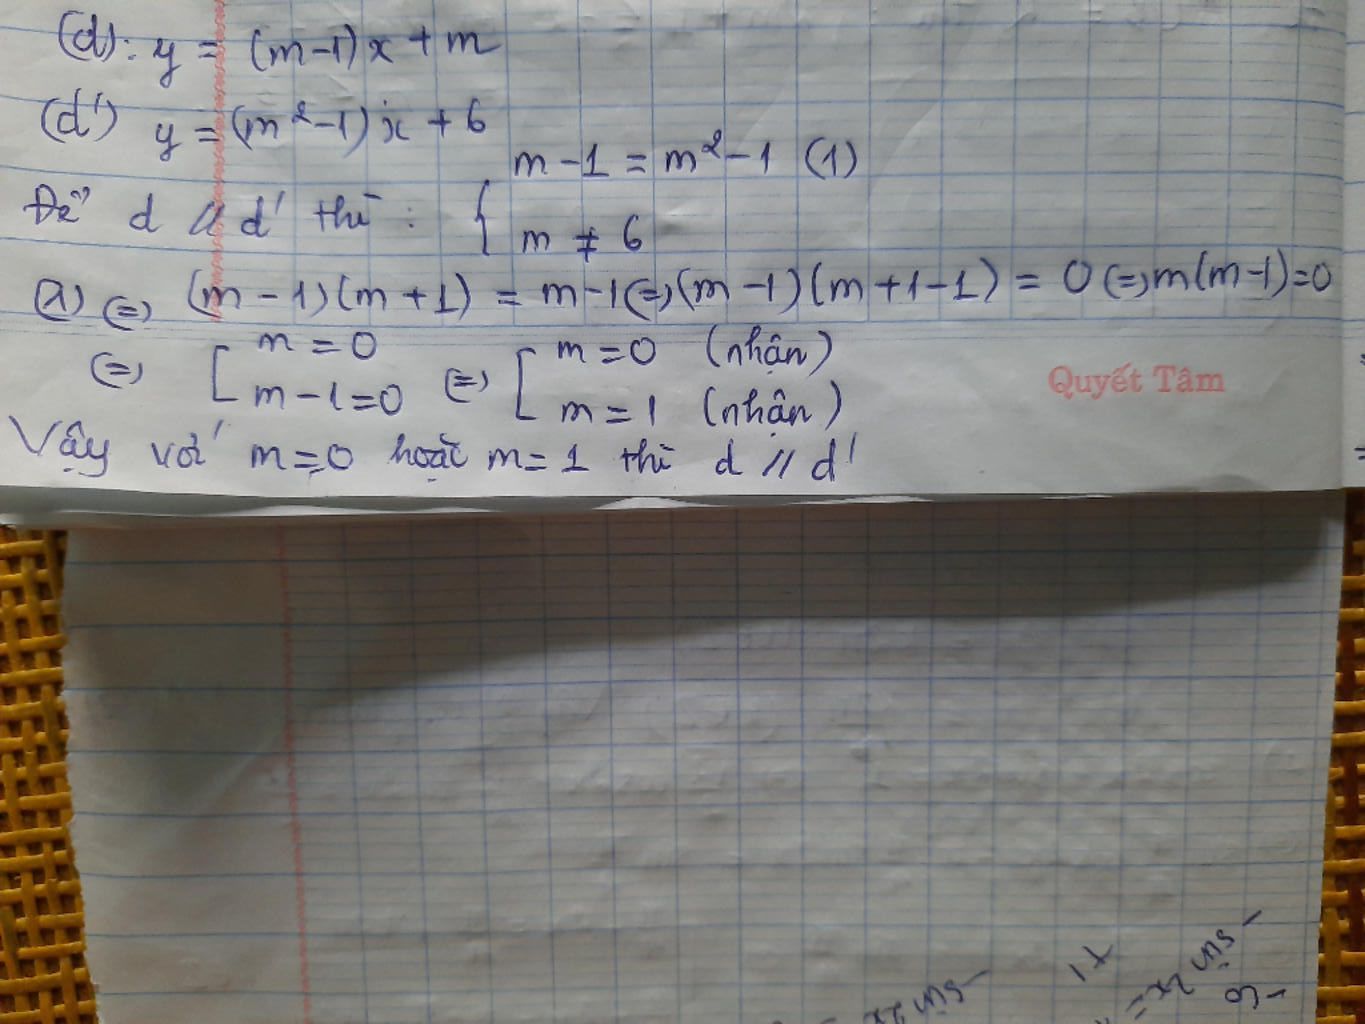 (d): y = (m-1)x + m
(d') y = (m²-1)x + 6
Để d // d' thì: { m-1 = m²-1 (1)
m ≠ 6
(1) (=) (m-1)(m+1) = m-1 (=) (m-1)(m+1-1) = 0 (=) m(m-1)=0
(=) [ m=0 (=) [ m=0 (nhận)
m-1=0 m=1 (nhận)
Quyết Tâm
Vậy với m=0 hoặc m=1 thì d // d'
- sin 2x =
- sin 2x